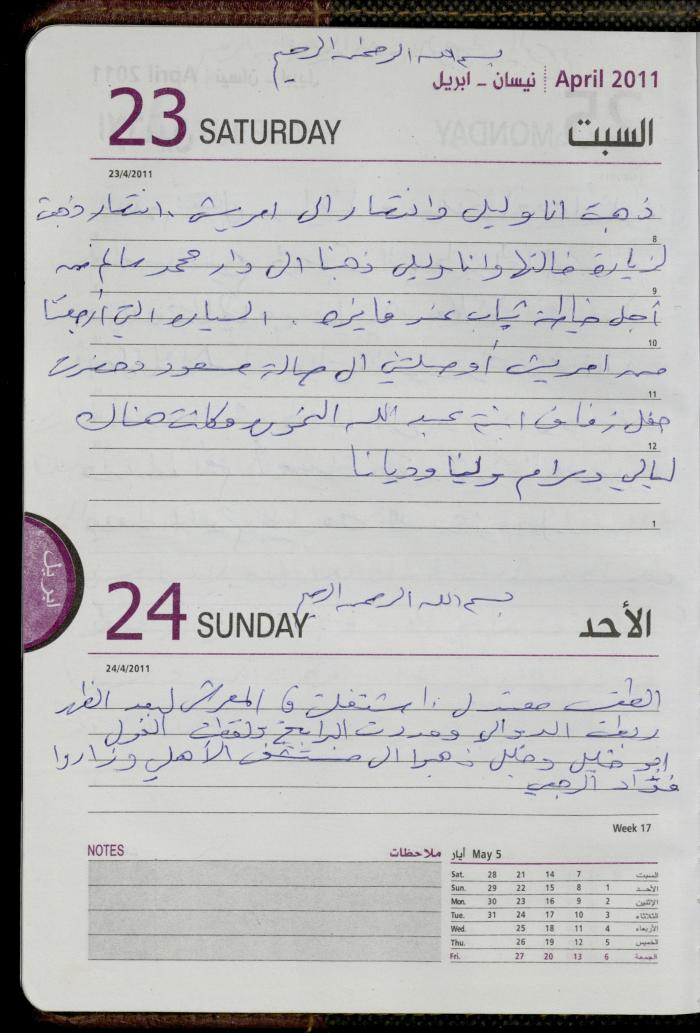 بسم الله الرحمن الرحيم
April 2011 نيسان - ابريل
23 SATURDAY السبت
23/4/2011
ذهبت انا وليلى وانتصار الى امريش . انتصار ذهبت
8
لزيارة خالتها وانا وليلى ذهبنا الى دار محمد سالم من
9
أجل خياطة ثياب عند فايزه . السياره التي أرجعتنا
10
من امريش أوصلتني الى صالة مسعود وحضرت
11
حفل زفاف ابنة عبد الله وكانت هناك
12
ليالي ومرام ولينا وديانا
1
ابريل
بسم الله الرحمن الرحيم
24 SUNDAY الأحد
24/4/2011
الطقس معتدل . اشتغلت في المعرش لبعد الظهر
ربطت الدوالي ومددت البرابيج ولقطت الفول
ابو خليل وخليل ذهبوا الى مستشفى الأهلي وزاروا
فؤاد الرجبي
Week 17
NOTES ملاحظات
May 5 أيار
Sat. 28 21 14 7 السبت
Sun. 29 22 15 8 1 الأحد
Mon. 30 23 16 9 2 الإثنين
Tue. 31 24 17 10 3 الثلاثاء
Wed. 25 18 11 4 الأربعاء
Thu. 26 19 12 5 الخميس
Fri. 27 20 13 6 الجمعة